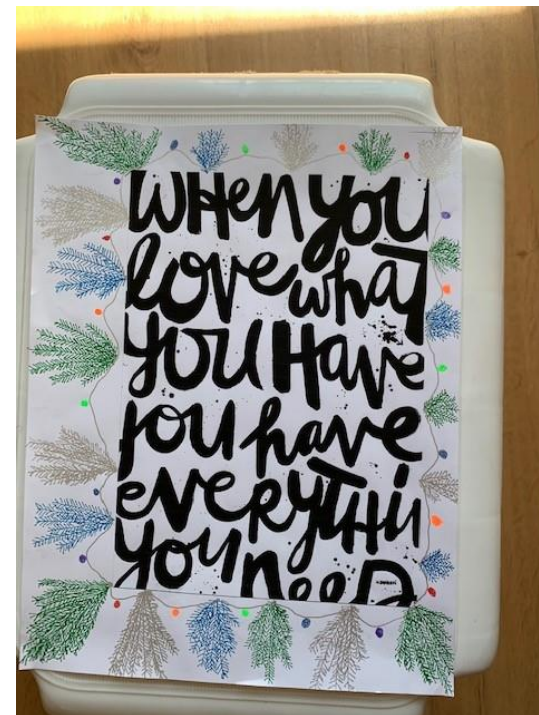 WHen you
love what
you Have
you have
eveRyTHin
you neeD